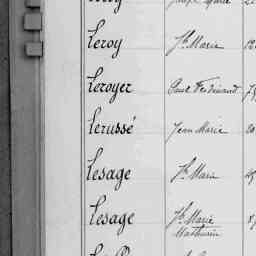 Leroy Jh Marie 12
Leroyer Paul Ferdinand
Lerussé Jean Marie 20
Lesage Jh Marie
Lesage Jh Marie
Mathurin